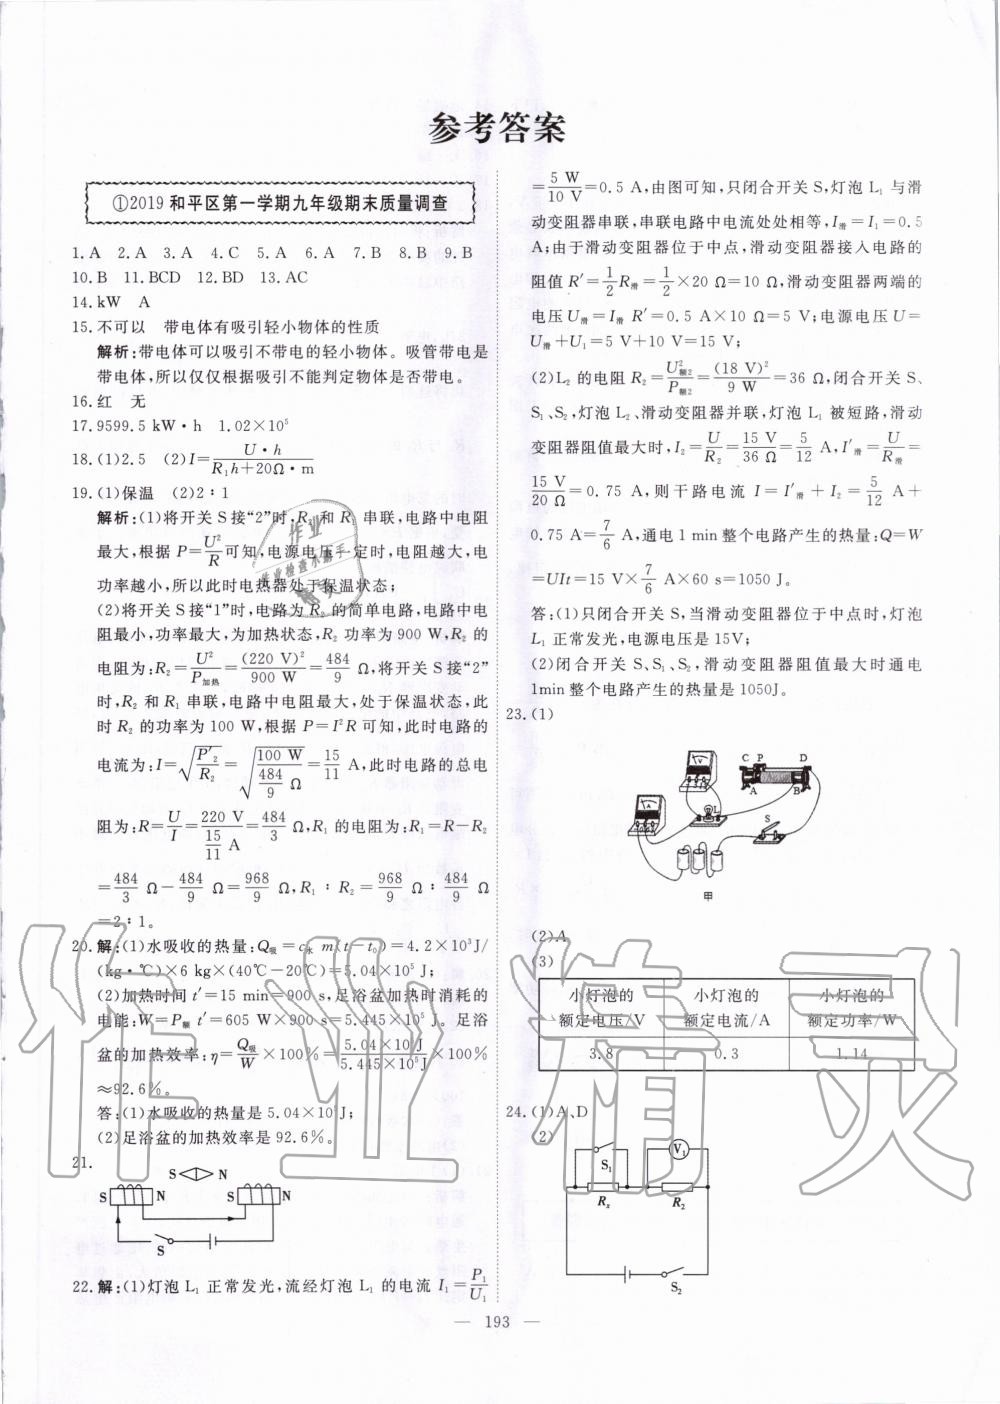 参考答案
①2019和平区第一学期九年级期末质量调查
1.A 2.A 3.A 4.C 5.A 6.A 7.B 8.B 9.B
10.B 11.BCD 12.BD 13.AC
14.kW A
15.不可以 带电体有吸引轻小物体的性质
解析:带电体可以吸引不带电的轻小物体。吸管带电是
带电体,所以仅仅根据吸引不能判定物体是否带电。
16.红 无
17.9599.5 kW·h 1.02×10⁵
18.(1)2.5 (2)I=U·h/(R₁h+20Ω·m)
19.(1)保温 (2)2∶1
解析:(1)将开关S接“2”时,R₂和R₁串联,电路中电阻
最大,根据P=U²/R可知,电源电压一定时,电阻越大,电
功率越小,所以此时电热器处于保温状态;
(2)将开关S接“1”时,电路为R₂的简单电路,电路中电
阻最小,功率最大,为加热状态,R₂功率为900 W,R₂的
电阻为:R₂=U²/P加热=(220 V)²/900 W=484/9 Ω,将开关S接“2”
时,R₂和R₁串联,电路中电阻最大,处于保温状态,此
时R₂的功率为100 W,根据P=I²R可知,此时电路的
电流为:I=√(P′₂/R₂)=√(100 W/(484/9 Ω))=15/11 A,此时电路的总电
阻为:R=U/I=220 V/(15/11 A)=484/3 Ω,R₁的电阻为:R₁=R-R₂
=484/3 Ω-484/9 Ω=968/9 Ω,R₁∶R₂=968/9 Ω∶484/9 Ω
=2∶1。
20.解:(1)水吸收的热量:Q吸=c水m(t-t₀)=4.2×10³J/
(kg·℃)×6 kg×(40℃-20℃)=5.04×10⁵ J;
(2)加热时间t′=15 min=900 s,足浴盆加热时消耗的
电能:W=P额t′=605 W×900 s=5.445×10⁵ J。足浴
盆的加热效率:η=Q吸/W×100%=5.04×10⁵J/5.445×10⁵J×100%
≈92.6%。
答:(1)水吸收的热量是5.04×10⁵J;
(2)足浴盆的加热效率是92.6%。
21.
S N
S N S N
S
22.解:(1)灯泡L₁正常发光,流经灯泡L₁的电流I₁=P₁/U₁
=5 W/10 V=0.5 A,由图可知,只闭合开关S,灯泡L₁与滑
动变阻器串联,串联电路中电流处处相等,I滑=I₁=0.5
A;由于滑动变阻器位于中点,滑动变阻器接入电路的
阻值R′=1/2R滑=1/2×20 Ω=10 Ω,滑动变阻器两端的
电压U滑=I滑R′=0.5 A×10 Ω=5 V;电源电压U=
U滑+U₁=5 V+10 V=15 V;
(2)L₂的电阻R₂=U²额2/P额2=(18 V)²/9 W=36 Ω,闭合开关S、
S₁、S₂,灯泡L₂、滑动变阻器并联,灯泡L₁被短路,滑动
变阻器阻值最大时,I₂=U/R₂=15 V/36 Ω=5/12 A,I′滑=U/R滑=
15 V/20 Ω=0.75 A,则干路电流I=I′滑+I₂=5/12 A+
0.75 A=7/6 A,通电1 min整个电路产生的热量:Q=W
=UIt=15 V×7/6 A×60 s=1050 J。
答:(1)只闭合开关S,当滑动变阻器位于中点时,灯泡
L₁正常发光,电源电压是15V;
(2)闭合开关S、S₁、S₂,滑动变阻器阻值最大时通电
1min整个电路产生的热量是1050J。
23.(1)
C P D
V
A B
A
L
S
甲
(2)A
(3)
小灯泡的额定电压/V 小灯泡的额定电流/A 小灯泡的额定功率/W
3.8 0.3 1.14
24.(1)A、D
(2)
V₁
S₁
Rₓ R₂
S₂
— 193 —
作业
作业检查小帮手
作业精灵